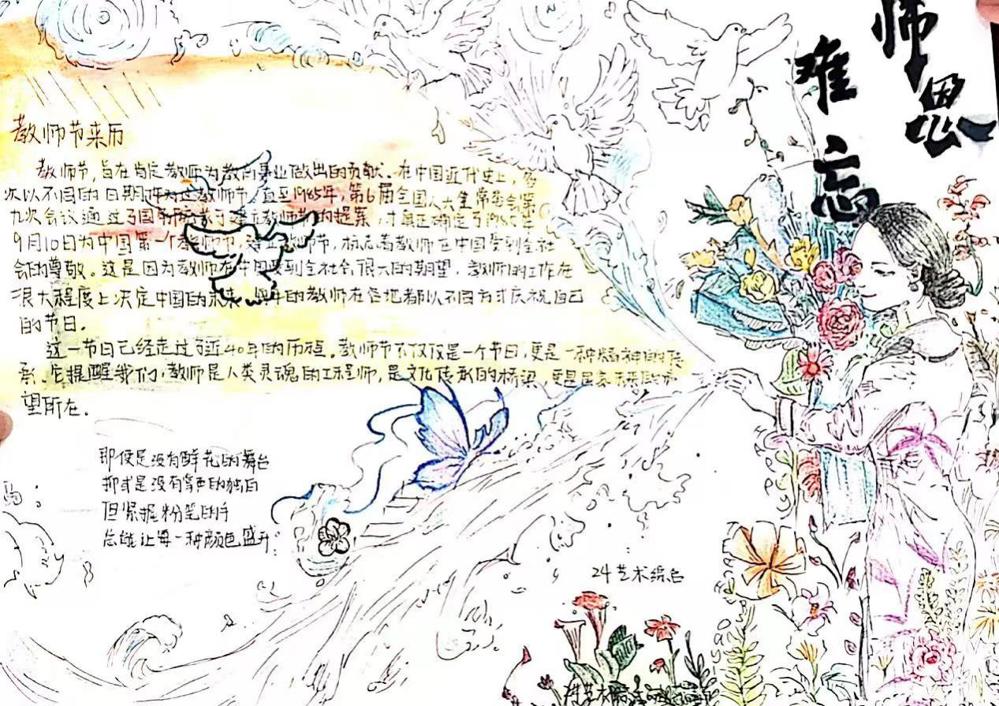 师恩
难忘
教师节来历
教师节，旨在肯定教师为教育事业做出的贡献。在中国近代史上，多
次以不同的日期作为过教师节，直至1985年，第6届全国人大常委会第
九次会议通过了国务院关于建立教师节的提案，才真正确定了1985年
9月10日为中国第一个教师节，教师节，标志着教师在中国受到全社
会的尊敬。这是因为教师在中国受到全社会很大的期望，教师的工作在
很大程度上决定中国的未来，每年的教师在各地都以不同方式庆祝自己
的节日。
这一节日已经走过了近40年的历程。教师节不仅仅是一个节日，更是一种精神的传
承。它提醒我们，教师是人类灵魂的工程师，是文化传承的桥梁，更是国家未来的希
望所在。
即使是没有鲜花的舞台
抑或是没有掌声的独白
但紧握粉笔的手
总能让每一种颜色盛开
24艺术综合